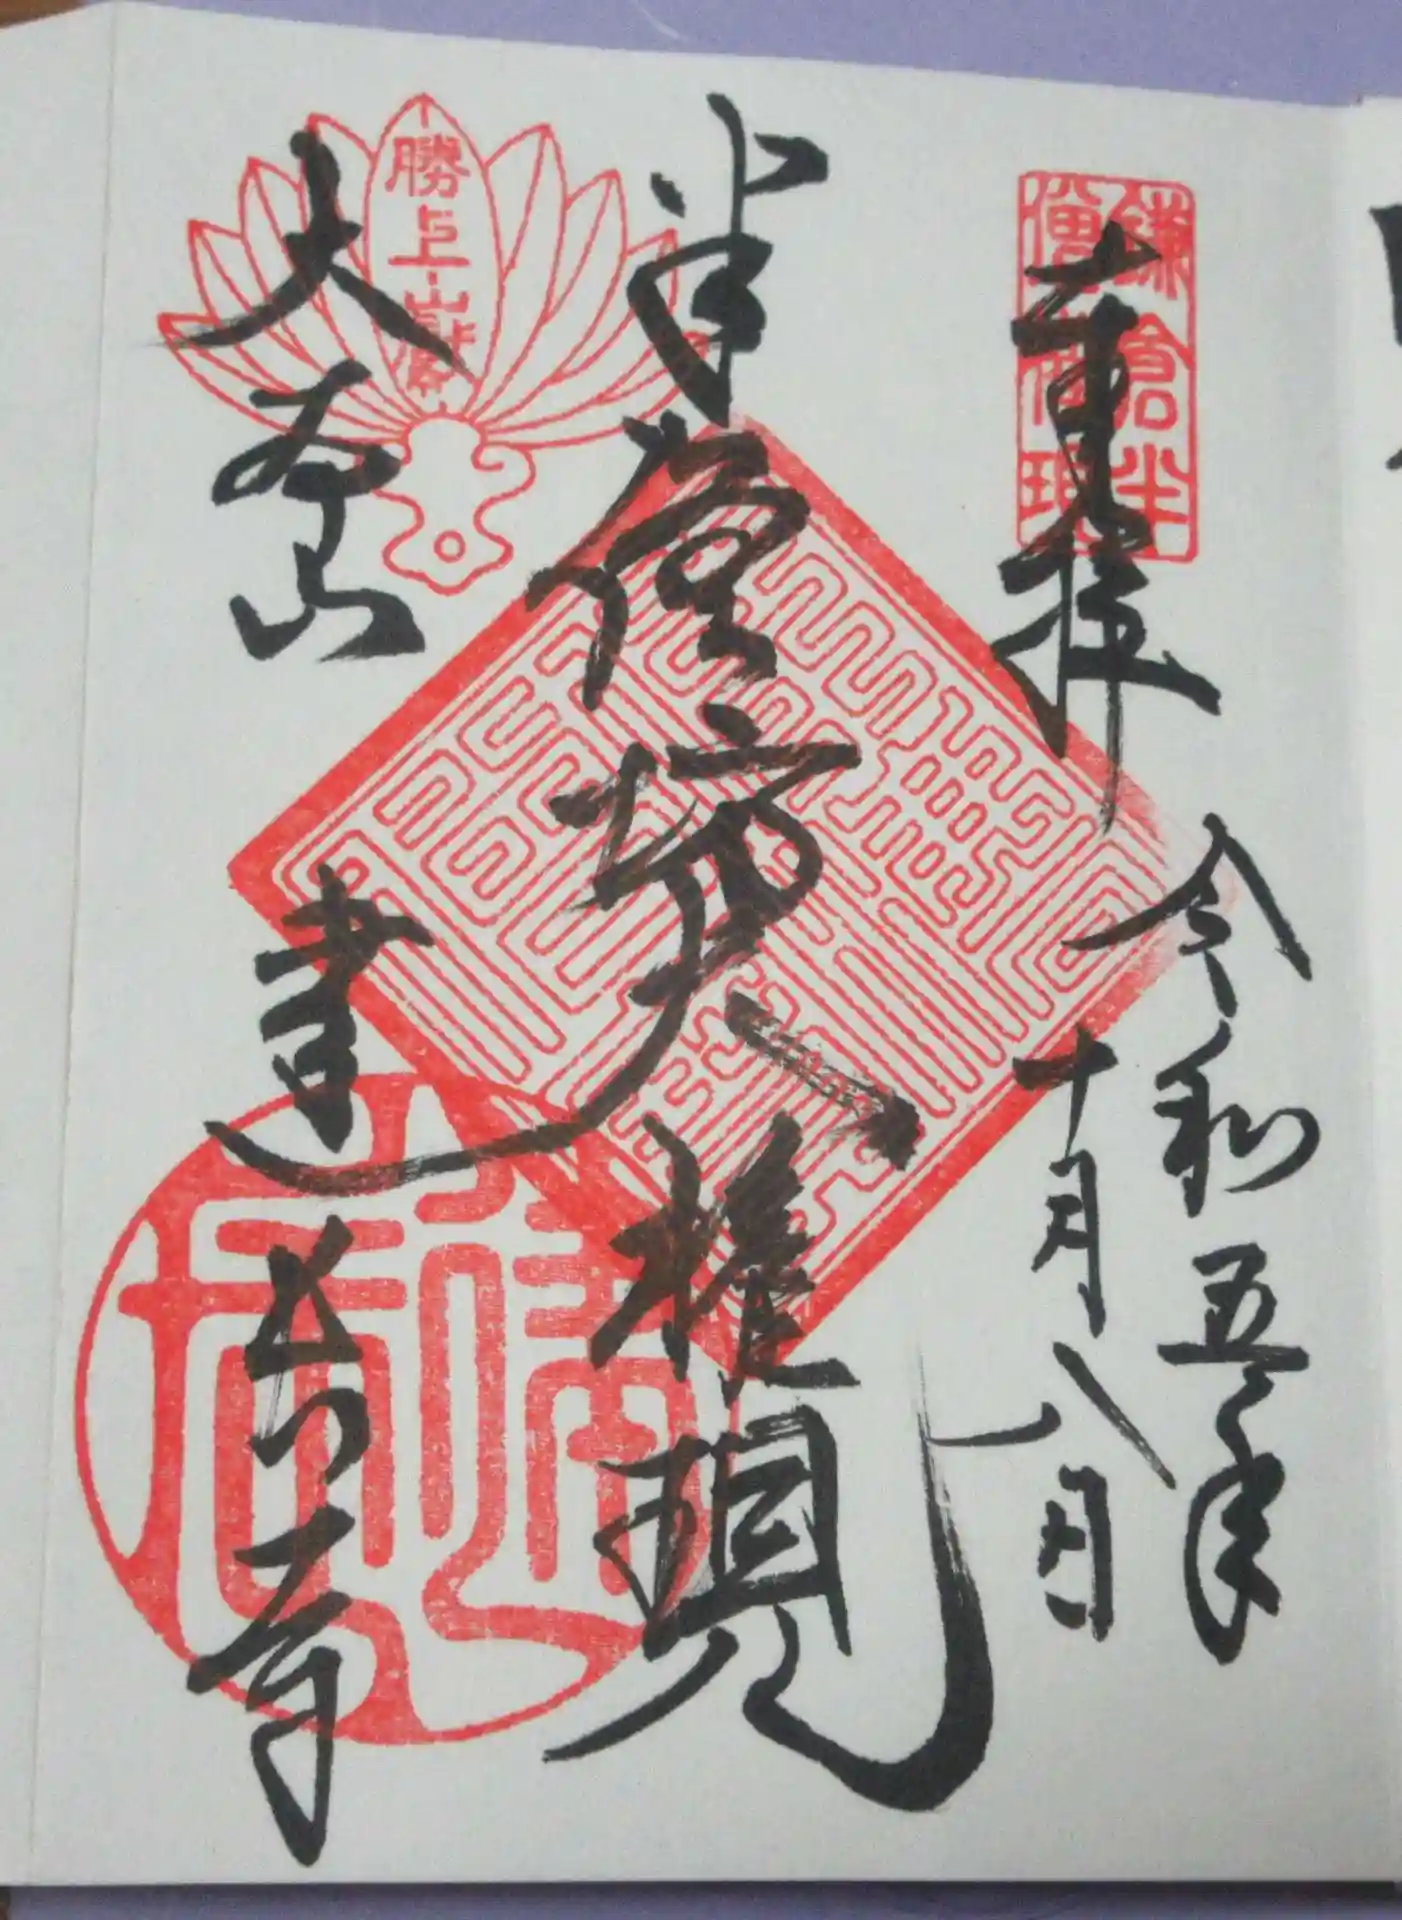 奉拝
令和五年
十月八日
半僧坊大権現
大本山
建長寺
鎌倉半
僧坊権現
勝上嶽